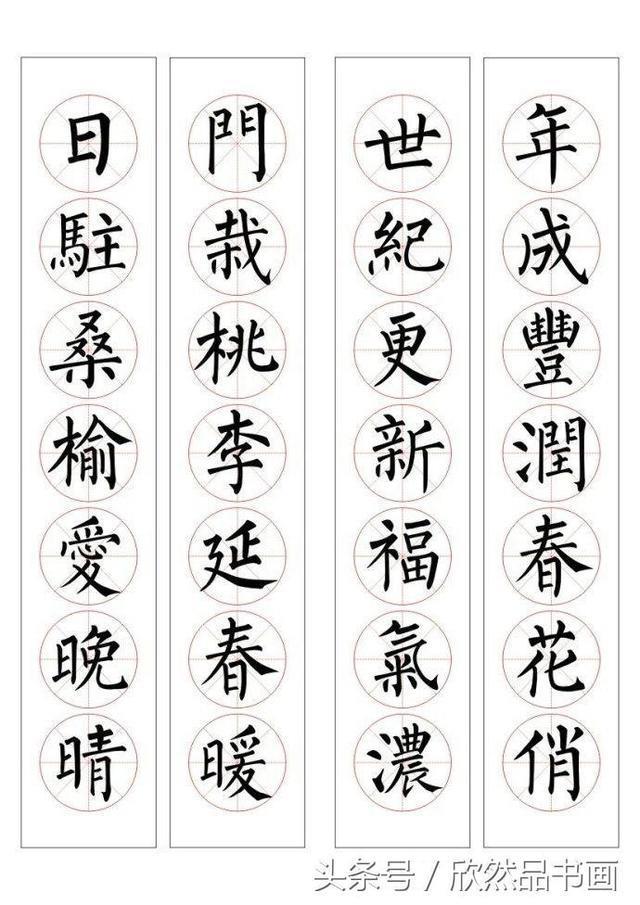 年成豐潤春花俏
世紀更新福氣濃
門栽桃李延春暖
日駐桑榆愛晚晴
头条号 / 欣然品书画